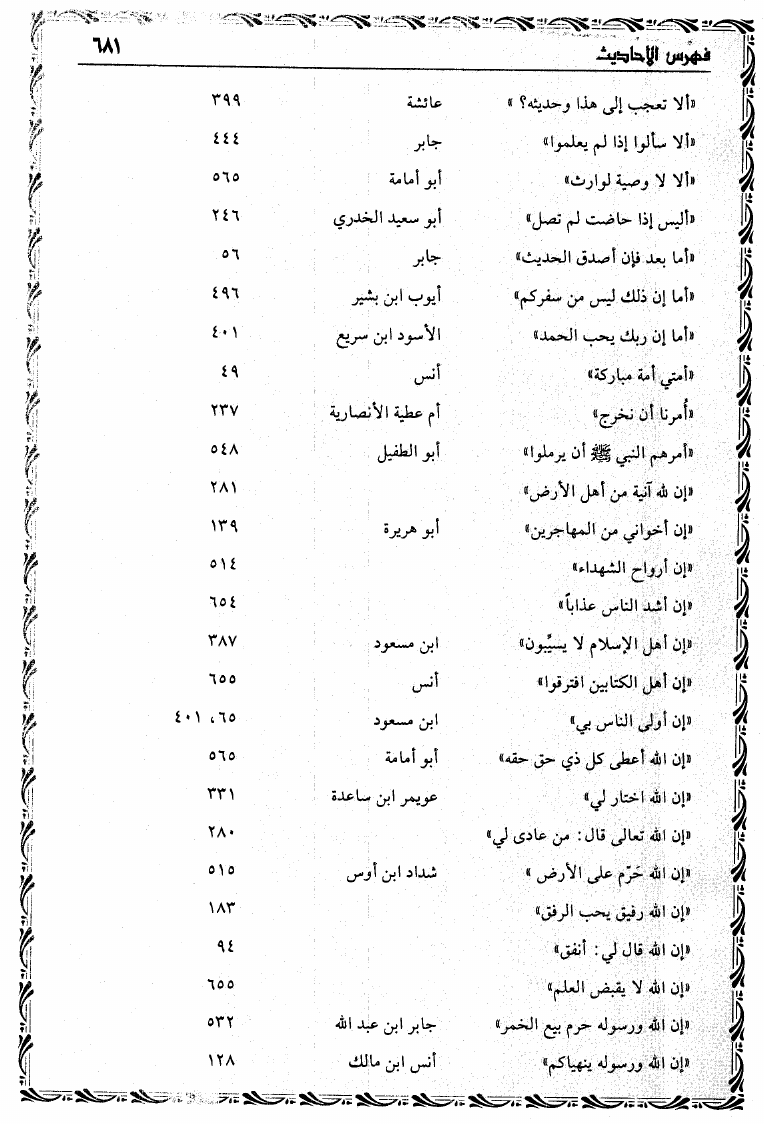 فهرس الأحاديث ٦٨١
«ألا تعجب إلى هذا وحديثه؟ » عائشة ٣٩٩
«ألا سألوا إذا لم يعلموا» جابر ٤٤٤
«ألا لا وصية لوارث» أبو أمامة ٥٦٥
«أليس إذا حاضت لم تصل» أبو سعيد الخدري ٢٤٦
«أما بعد فإن أصدق الحديث» جابر ٥٦
«أما إن ذلك ليس من سفركم» أيوب ابن بشير ٤٩٦
«أما إن ربك يحب الحمد» الأسود ابن سريع ٤٠١
«أمتي أمة مباركة» أنس ٤٩
«أُمرنا أن نخرج» أم عطية الأنصارية ٢٣٧
«أمرهم النبي ﷺ أن يرملوا» أبو الطفيل ٥٤٨
«إن لله آنية من أهل الأرض» ٢٨١
«إن أخواني من المهاجرين» أبو هريرة ١٣٩
«إن أرواح الشهداء» ٥١٤
«إن أشد الناس عذاباً» ٦٥٤
«إن أهل الإسلام لا يسيِّبون» ابن مسعود ٣٨٧
«إن أهل الكتابين افترقوا» أنس ٦٥٥
«إن أولى الناس بي» ابن مسعود ٦٥، ٤٠١
«إن الله أعطى كل ذي حق حقه» أبو أمامة ٥٦٥
«إن الله اختار لي» عويمر ابن ساعدة ٣٣١
«إن الله تعالى قال: من عادى لي» ٢٨٠
«إن الله حَرّم على الأرض » شداد ابن أوس ٥١٥
«إن الله رفيق يحب الرفق» ١٨٣
«إن الله قال لي: أنفق» ٩٤
«إن الله لا يقبض العلم» ٦٥٥
«إن الله ورسوله حرم بيع الخمر» جابر ابن عبد الله ٥٣٢
«إن الله ورسوله ينهياكم» أنس ابن مالك ١٢٨